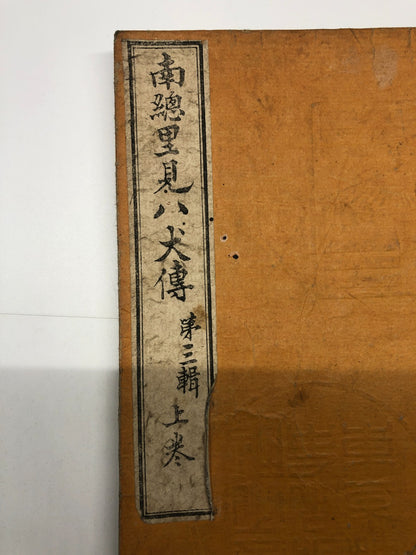 南總里見八犬傳 第三輯 上巻